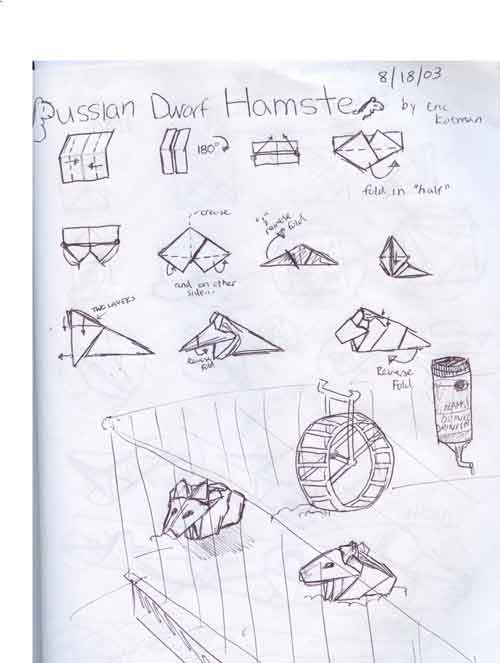 8/18/03
Russian Dwarf Hamster
by Eric
180°
fold in "half"
crease
and on other
side...
reverse
fold
TWO LAYERS
Reverse
fold
Reverse
Fold